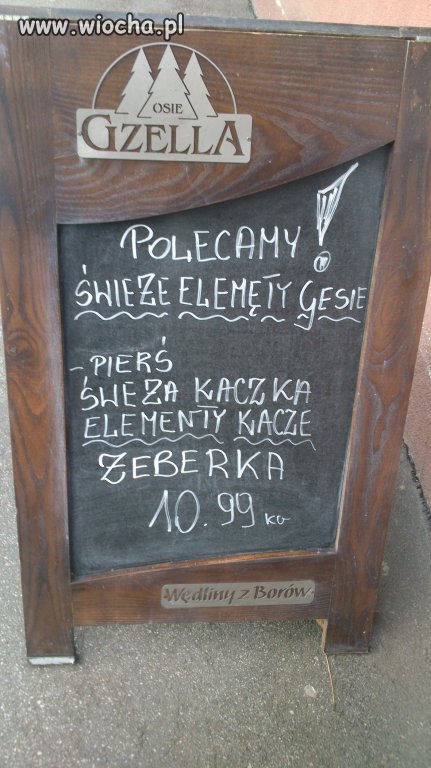 www.wiocha.pl
OSIE
GZELLA
POLECAMY!
ŚWIEŻE ELEMĘTY GĘSIE
- PIERŚ
ŚWEŻA KACZKA
ELEMENTY KACZE
ŻEBERKA
10.99 KG
Wędliny z Borów